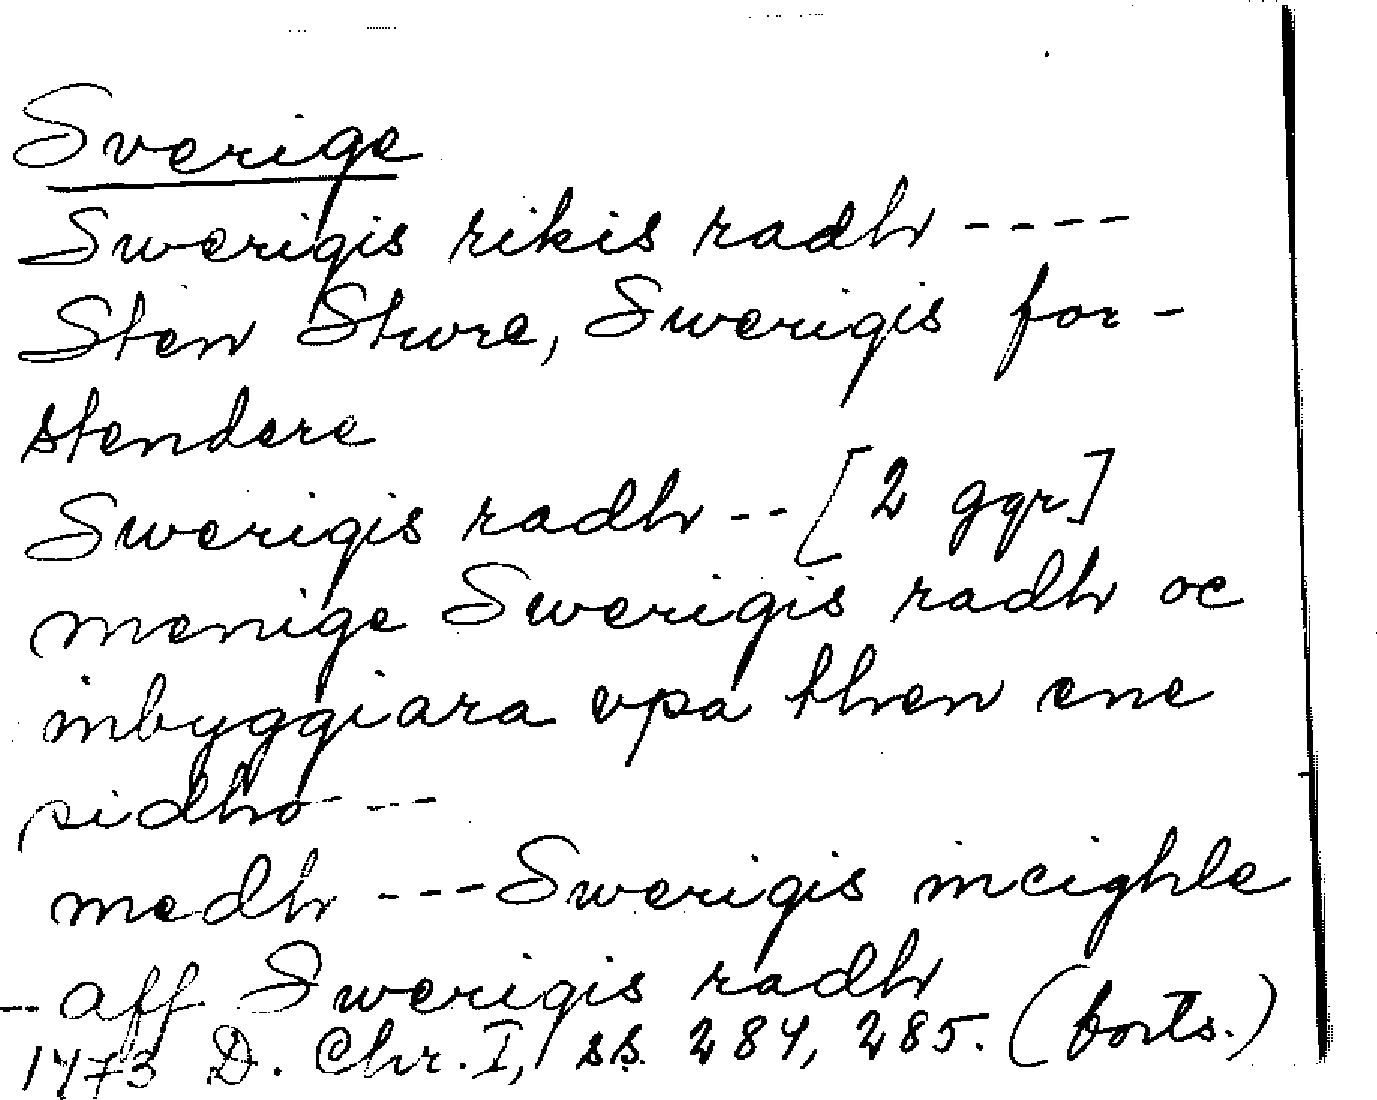 Sverige
Swerigis rikis radh ----
Sten Sture, Swerigis for-
stendere
Swerigis radh -- [2 ggr]
menige Swerigis radh oc
inbyggiara vpa then ene
sidho ---
medh --- Swerigis inceighle
- aff Swerigis radh
1473 D. Chr. I, ss. 284, 285. (forts.)